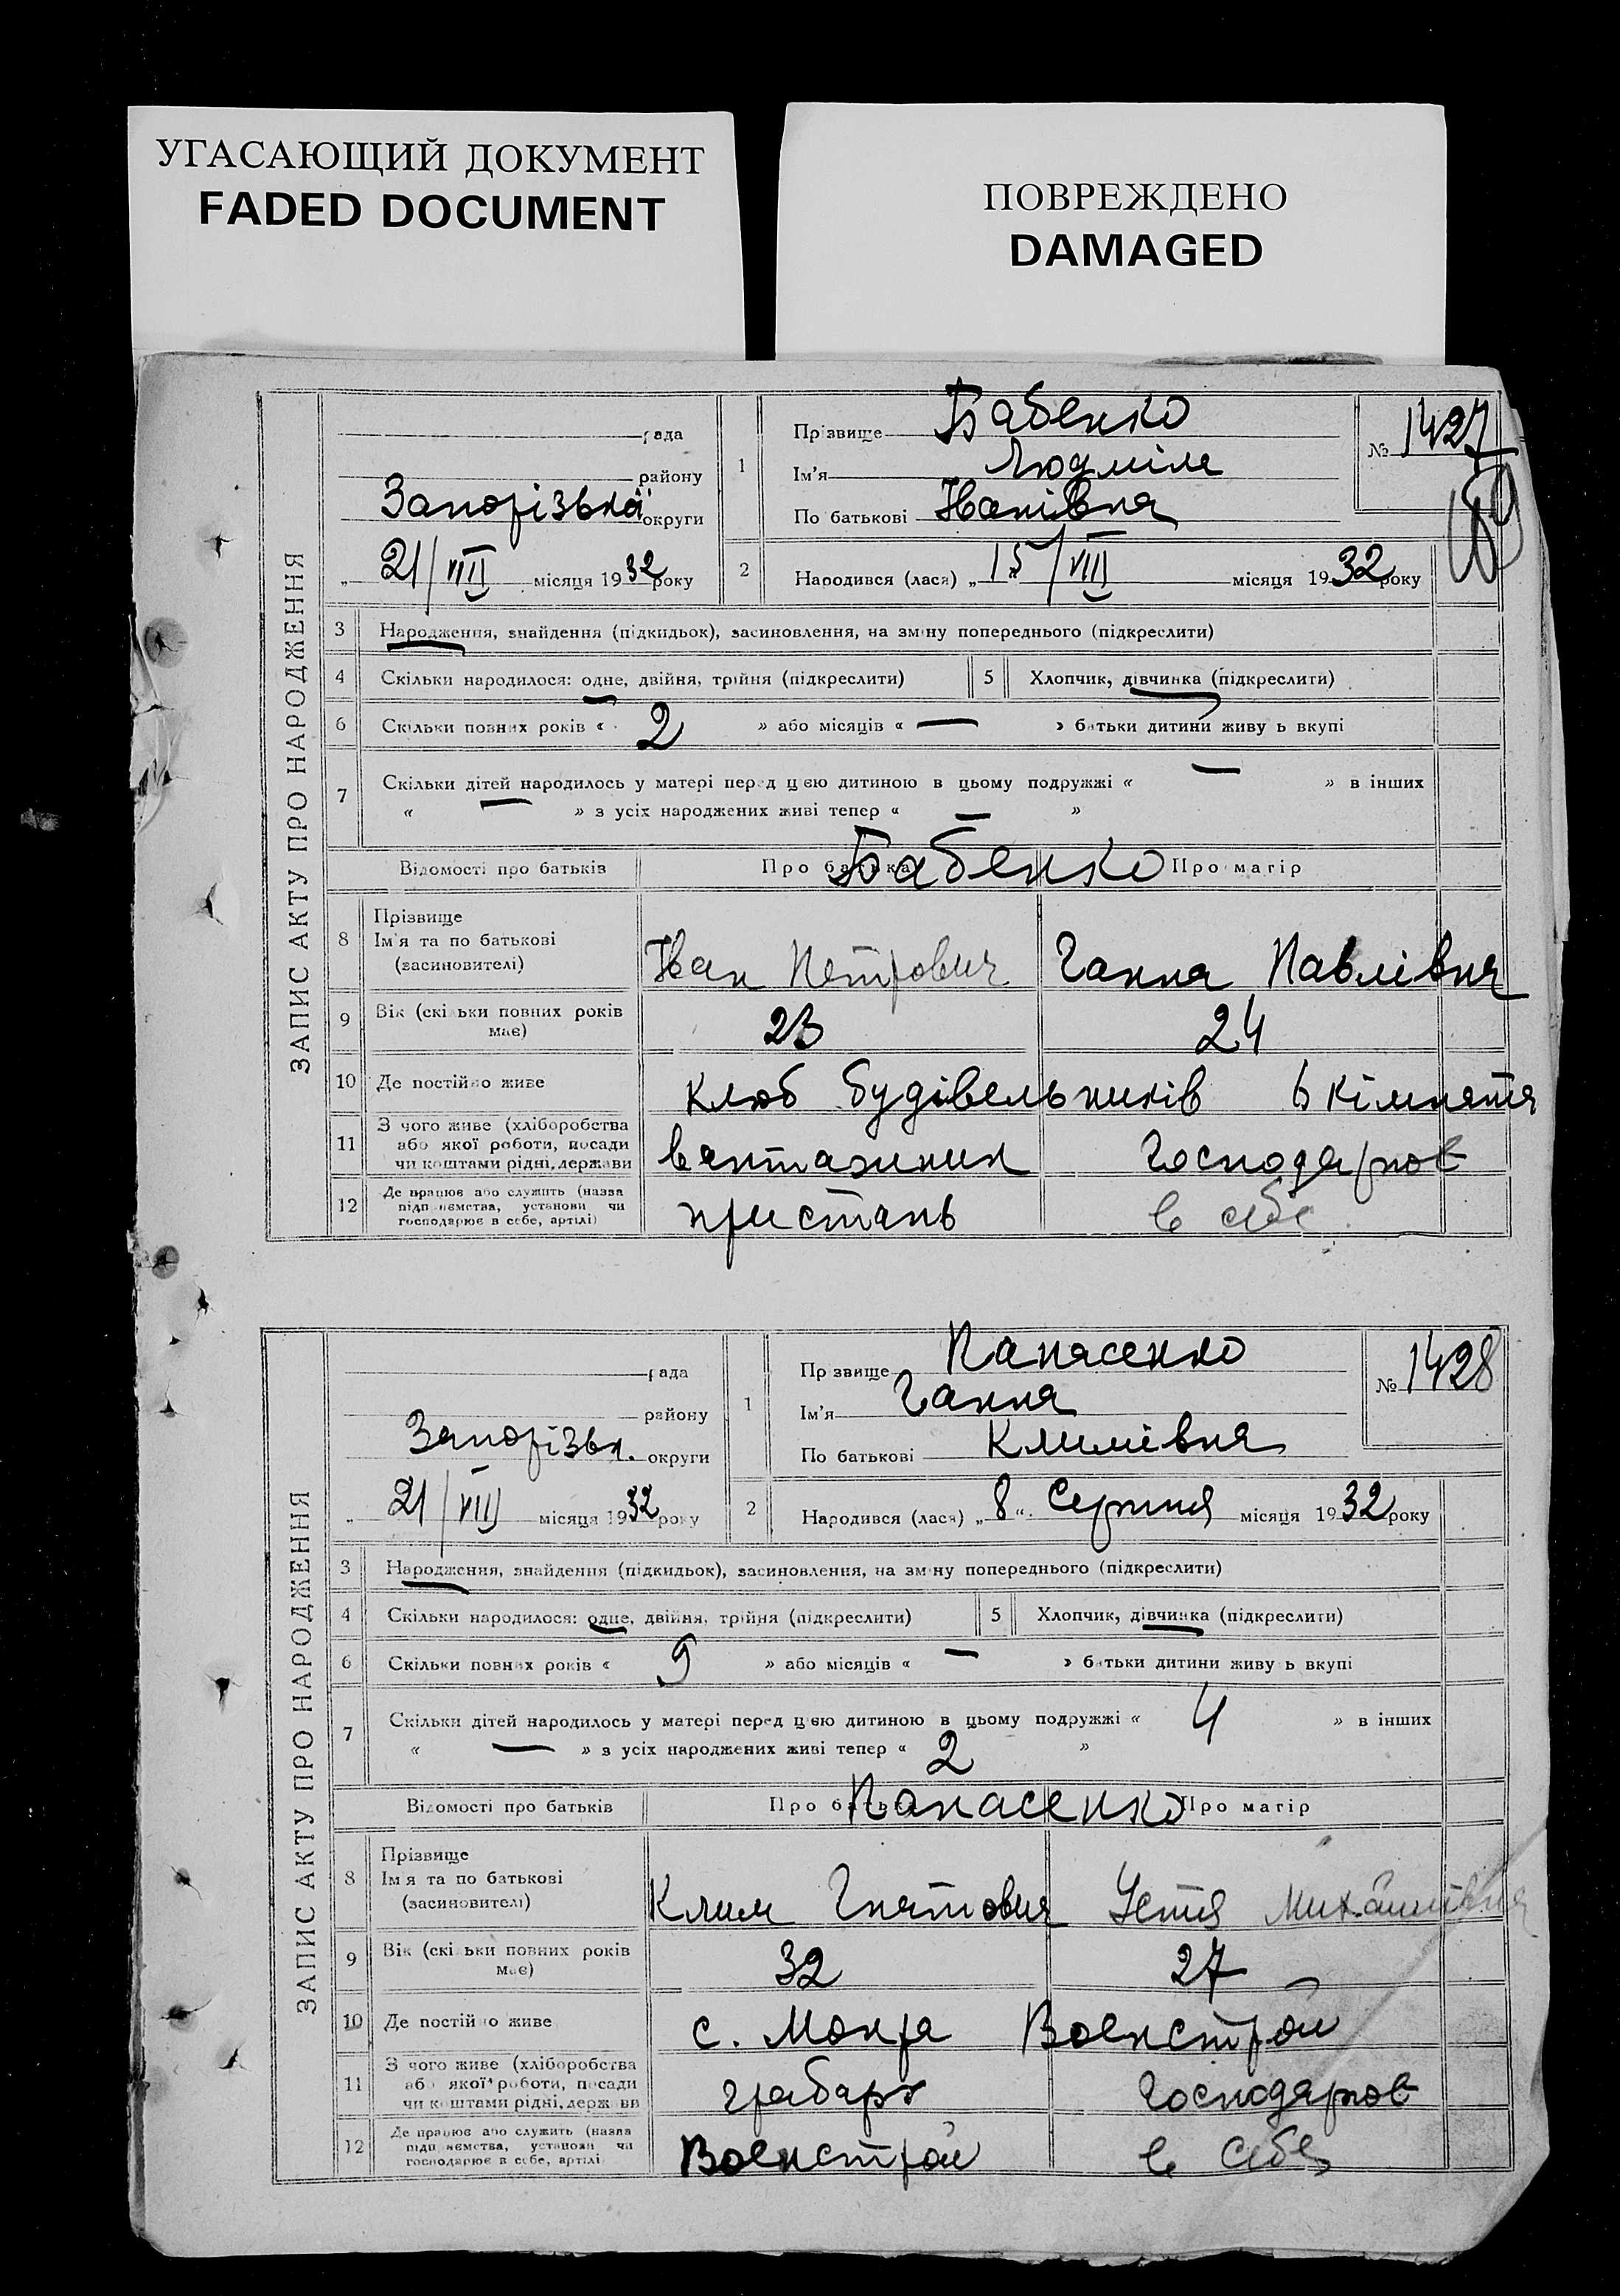 УГАСАЮЩИЙ ДОКУМЕНТ
FADED DOCUMENT
ПОВРЕЖДЕНО
DAMAGED
ЗАПИС АКТУ ПРО НАРОДЖЕННЯ
рада
району
Запорізької округи
„ 21/VIII місяця 1932 року
1 Прізвище Бабенко
Ім'я Людміла
По батькові Іванівна
№ 1427
2 Народився (лася) „ 15/VIII місяця 1932 року
3 Народження, знайдення (підкидьок), засиновлення, на зміну попереднього (підкреслити)
4 Скільки народилося: одне, двійня, трійня (підкреслити) 5 Хлопчик, дівчинка (підкреслити)
6 Скільки повних років « 2 » або місяців « — » батьки дитини живуть вкупі
7 Скільки дітей народилось у матері перед цією дитиною в цьому подружжі « — » в інших
« — » з усіх народжених живі тепер « — »
Відомості про батьків Про батька Бабенко Про матір
8 Прізвище
Ім'я та по батькові
(засиновителі)
Іван Петрович Ганна Павлівна
9 Вік (скільки повних років має) 23 24
10 Де постійно живе Клюб будівельників 6 кімната
11 З чого живе (хліборобства
або якої роботи, посади
чи коштами рідні, держави
вантажник Господарює
12 Де працює або служить (назва
підприємства, установи чи
господарює в себе, артілі)
пристань в себе
ЗАПИС АКТУ ПРО НАРОДЖЕННЯ
рада
району
Запорізьк. округи
„ 21/VIII місяця 1932 року
1 Прізвище Панасенко
Ім'я Ганна
По батькові Климівна
№ 1428
2 Народився (лася) „ 8 “ Серпня місяця 1932 року
3 Народження, знайдення (підкидьок), засиновлення, на зміну попереднього (підкреслити)
4 Скільки народилося: одне, двійня, трійня (підкреслити) 5 Хлопчик, дівчинка (підкреслити)
6 Скільки повних років « 9 » або місяців « — » батьки дитини живуть вкупі
7 Скільки дітей народилось у матері перед цією дитиною в цьому подружжі « 4 » в інших
« — » з усіх народжених живі тепер « 2 »
Відомості про батьків Про батька Панасенко Про матір
8 Прізвище
Ім'я та по батькові
(засиновителі)
Клим Гнатович Устя Михайлівна
9 Вік (скільки повних років має) 32 27
10 Де постійно живе с. Мокра Военстрой
11 З чого живе (хліборобства
або якої роботи, посади
чи коштами рідні, держави
грабарь Господарює
12 Де працює або служить (назва
підприємства, установи чи
господарює в себе, артілі)
Военстрой в себе